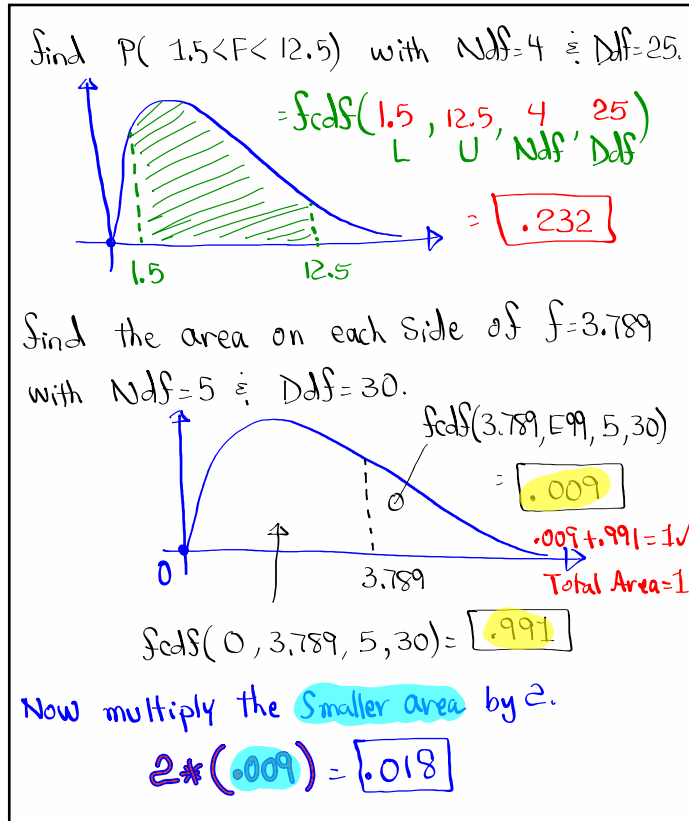 find P( 1.5<F<12.5) with Ndf=4 & Ddf=25.
=fcdf(1.5, 12.5, 4, 25)
L U Ndf, Ddf
= .232
1.5 12.5
find the area on each Side of f=3.789
with Ndf=5 & Ddf=30.
fcdf(3.789, E99, 5, 30)
= .009
.009+.991=1✓
0 3.789 Total Area=1
fcdf( 0, 3.789, 5, 30)= .991
Now multiply the Smaller area by 2.
2*(.009) = .018